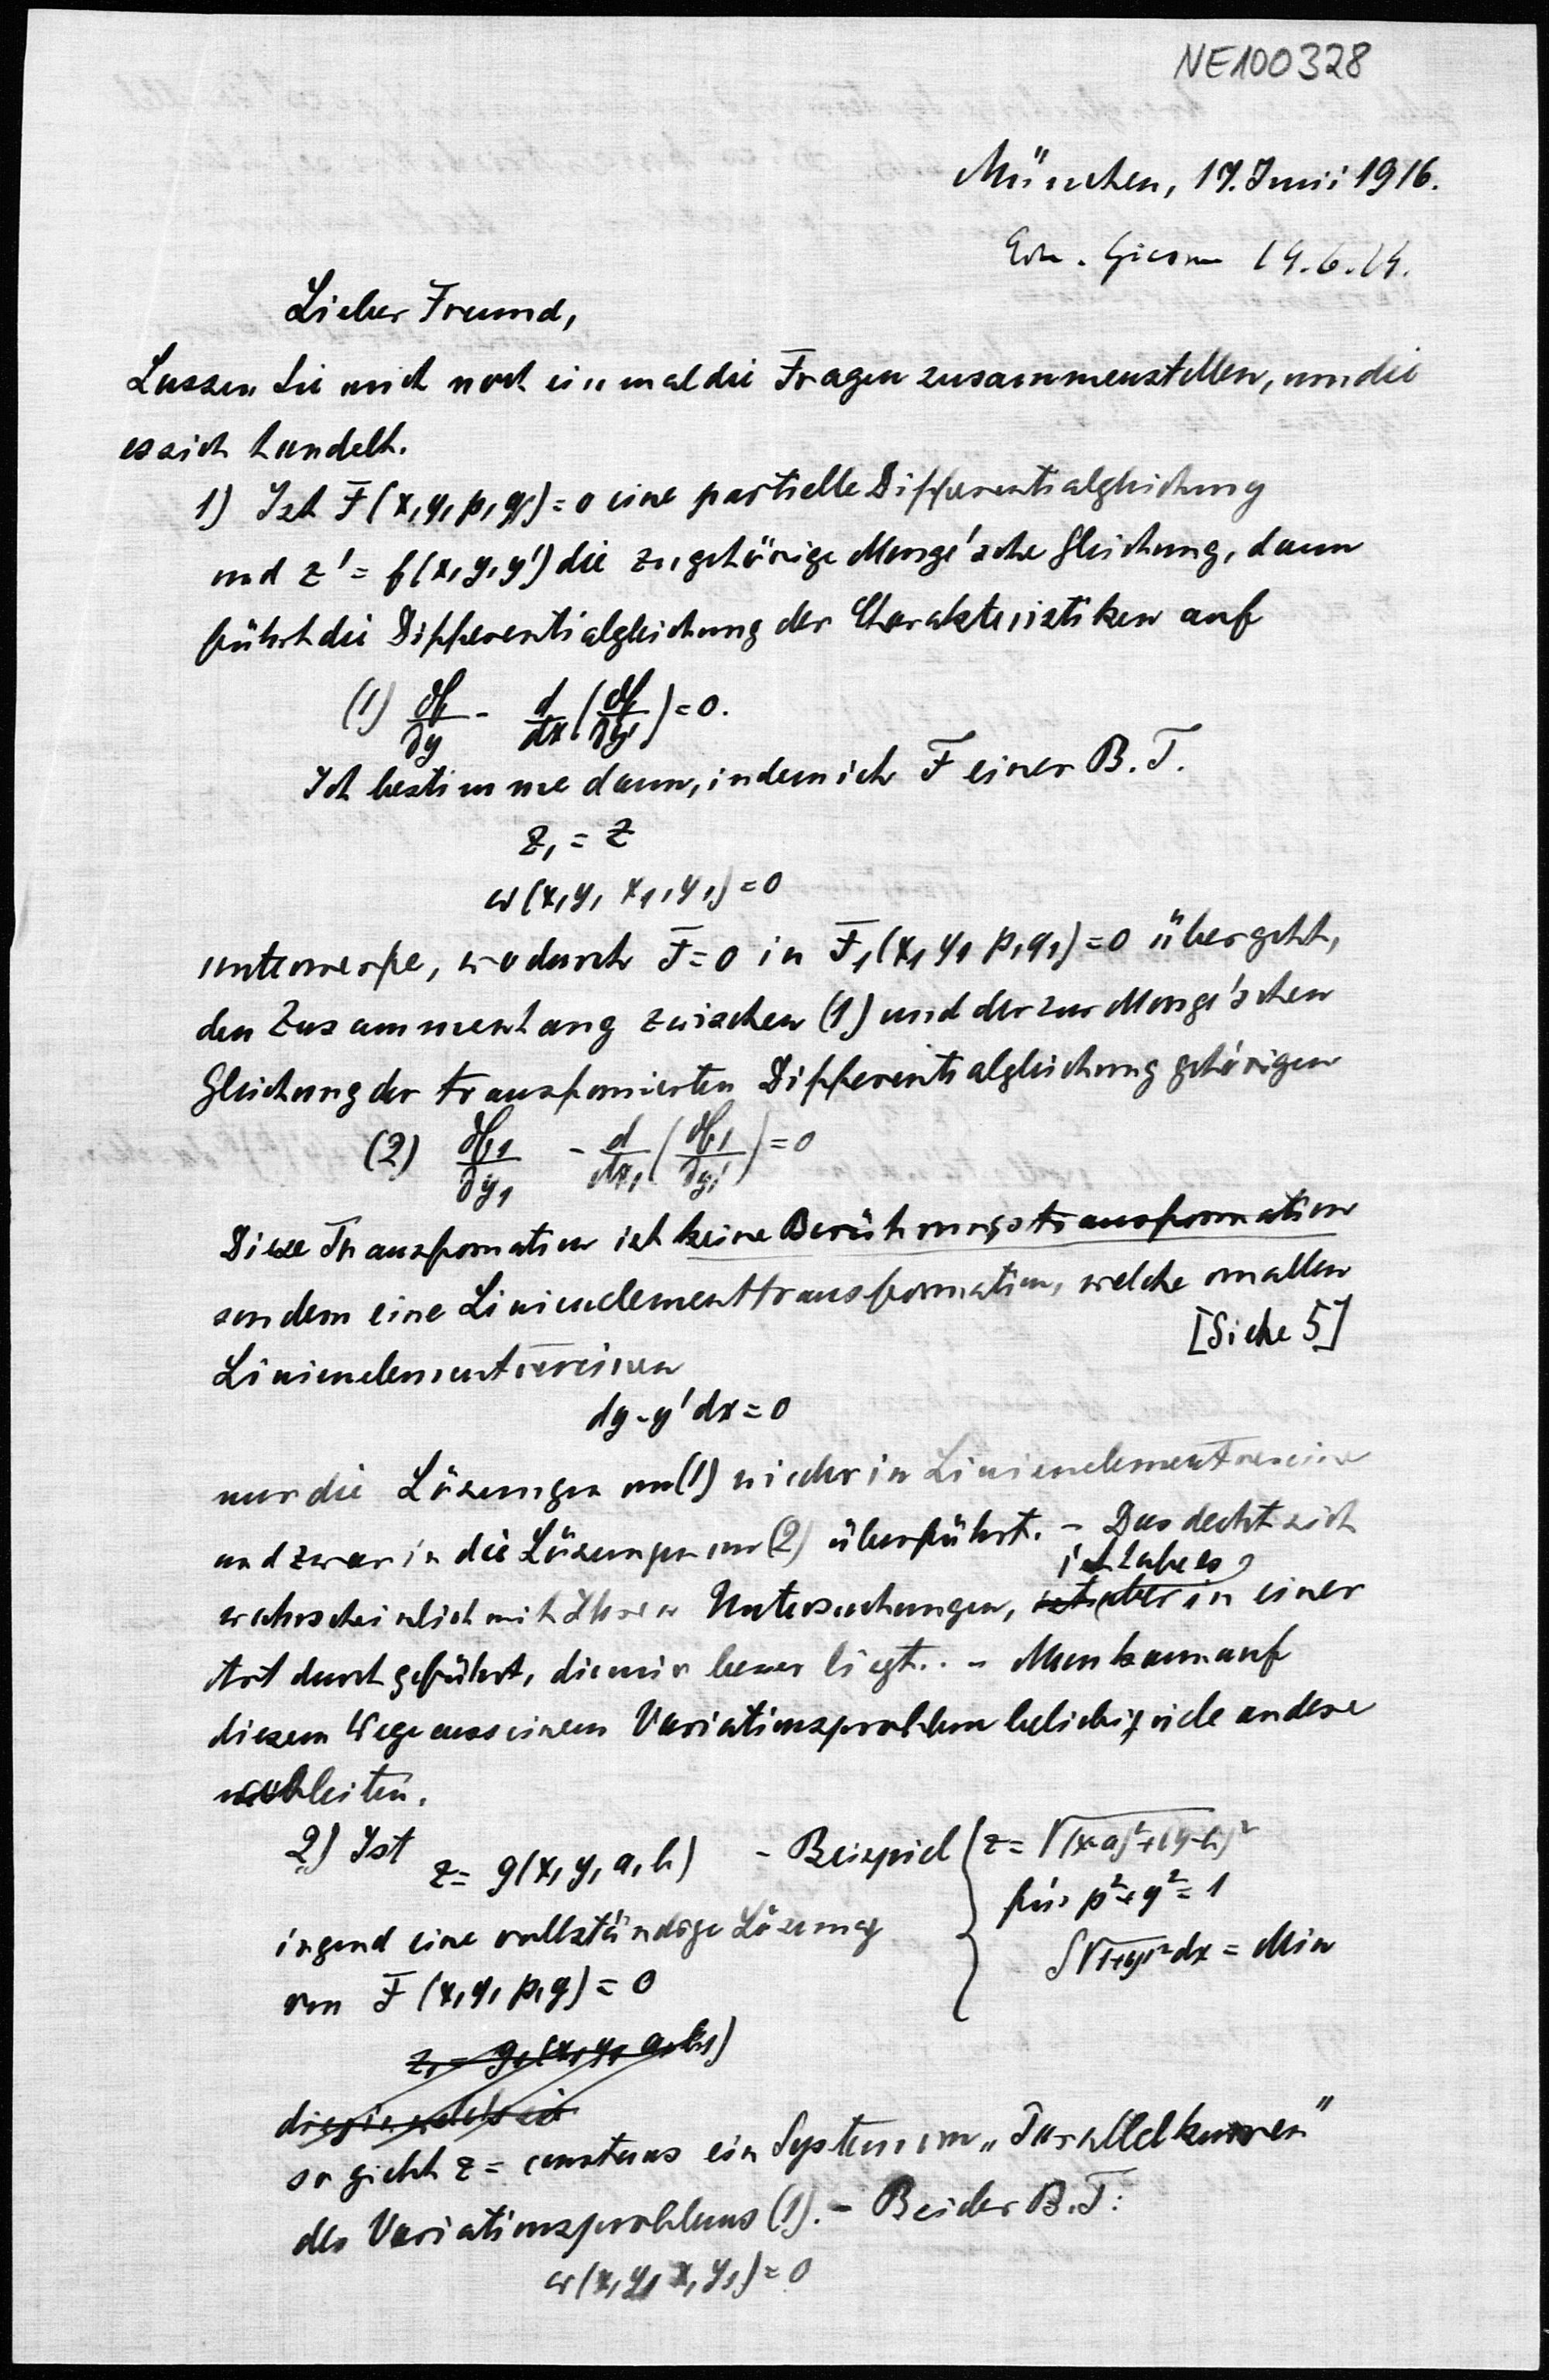 NE100328
München, 17. Juni 1916.
19.6.19.
Lieber Freund,
Lassen Sie mich noch einmal die Fragen zusammenstellen, um die
es sich handelt.
1) Ist F(x,y,p,q) = 0 eine partielle Differentialgleichung
und z' = f(x,y,y') die zugehörige Monge'sche Gleichung, dann
führt die Differentialgleichung der Charakteristiken auf
(1) ∂f/∂y - d/dx (∂f/∂y') = 0.
Ich bestimme dann, indem ich F einer B.T.
z₁ = z
w(x,y, x₁,y₁) = 0
unterwerfe, wodurch F = 0 in F₁(x₁ y₁ p₁q₁) = 0 übergeht,
den Zusammenhang zwischen (1) und der zur Monge'schen
Gleichung der transformierten Differentialgleichung gehörigen
(2) ∂f₁/∂y₁ - d/dx₁ (∂f₁/∂y₁') = 0
Diese Transformation ist keine Berührungstransformation
sondern eine Linienelementtransformation, welche von allen
[Siehe 5]
Linienelementvereinen
dy - y'dx = 0
nur die Lösungen von (1) wieder in Linienelementvereine
und zwar in die Lösungen von (2) überführt. - Das deckt sich
ich habe es
wahrscheinlich mit Ihren Untersuchungen, ist aber in einer
Art durchgeführt, die mir besser liegt. - Man kann auf
diesem Wege aus einem Variationsproblem beliebig viele andere
ableiten.
2) Ist z = g(x,y,a,b) - Beispiel { z = √(x-a)²+(y-b)²
für p²+q² = 1
irgend eine vollständige Lösung
∫√1+y'² dx = Min
von F(x,y,p,q) = 0
z₁ = g₁(x₁,y₁ a₁b₁)
so giebt z = constans ein System von „Parallelkurven"
des Variationsproblems (1). - Bei der B.T:
w(x,y, x₁ y₁) = 0